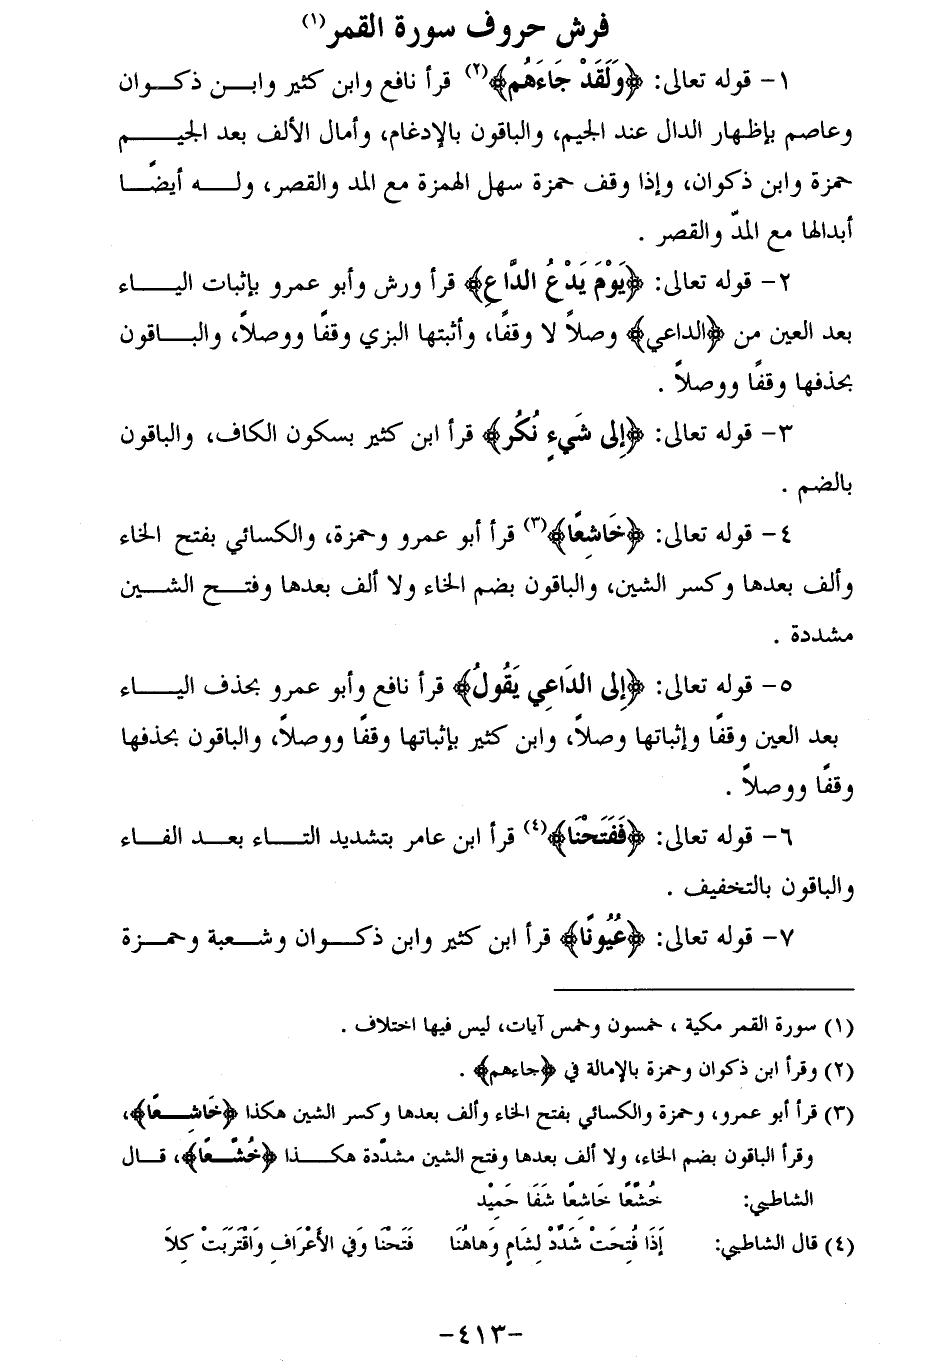 فرش حروف سورة القمر(١)
١- قوله تعالى: ﴿وَلَقَدْ جَاءَهُم﴾(٢) قرأ نافع وابن كثير وابـن ذكـوان
وعاصم بإظهار الدال عند الجيم، والباقون بالإدغام، وأمال الألف بعد الجيـم
حمزة وابن ذكوان، وإذا وقف حمزة سهل الهمزة مع المد والقصر، ولـه أيضًـا
أبدالها مع المدّ والقصر .
٢- قوله تعالى: ﴿يَوْمَ يَدْعُ الدَّاعِ﴾ قرأ ورش وأبو عمرو بإثبات اليـاء
بعد العين من ﴿الداعي﴾ وصلاً لا وقفًا، وأثبتها البزي وقفًا ووصلاً، والبـاقون
بحذفها وقفًا ووصلاً .
٣- قوله تعالى: ﴿إِلى شَيءٍ نُكُر﴾ قرأ ابن كثير بسكون الكاف، والباقون
بالضم .
٤- قوله تعالى: ﴿خَاشِعًا﴾(٣) قرأ أبو عمرو وحمزة، والكسائي بفتح الخاء
وألف بعدها وكسر الشين، والباقون بضم الخاء ولا ألف بعدها وفتـح الشـين
مشددة .
٥- قوله تعالى: ﴿إِلى الدَاعِي يَقُولُ﴾ قرأ نافع وأبو عمرو بحذف اليـاء
بعد العين وقفًا وإثباتها وصلاً، وابن كثير بإثباتها وقفًا ووصلاً، والباقون بحذفها
وقفًا ووصلاً .
٦- قوله تعالى: ﴿فَفَتَحْنَا﴾(٤) قرأ ابن عامر بتشديد التـاء بعـد الفـاء
والباقون بالتخفيف .
٧- قوله تعالى: ﴿عُيُونًا﴾ قرأ ابن كثير وابن ذكـوان وشـعبة وحمـزة
(١) سورة القمر مكية ، خمسون وخمس آيات، ليس فيها اختلاف .
(٢) وقرأ ابن ذكوان وحمزة بالإمالة في ﴿جاءهم﴾ .
(٣) قرأ أبو عمرو، وحمزة والكسائي بفتح الخاء وألف بعدها وكسر الشين هكذا ﴿خَاشِـعًا﴾،
وقرأ الباقون بضم الخاء، ولا ألف بعدها وفتح الشين مشدّدة هكـذا ﴿خُشَّـعًا﴾، قـال
الشاطبي: خُشَّعًا خَاشِعًا شَفَا حَمِيْد
(٤) قال الشاطبي: إَذَا فُتِحَتْ شَدِّدْ لِشَامٍ وَهاهُنَا فَتَحْنَا وَفي الأَعْرَافِ وَاقْتَرَبَتْ كِلاَ
-٤١٣-